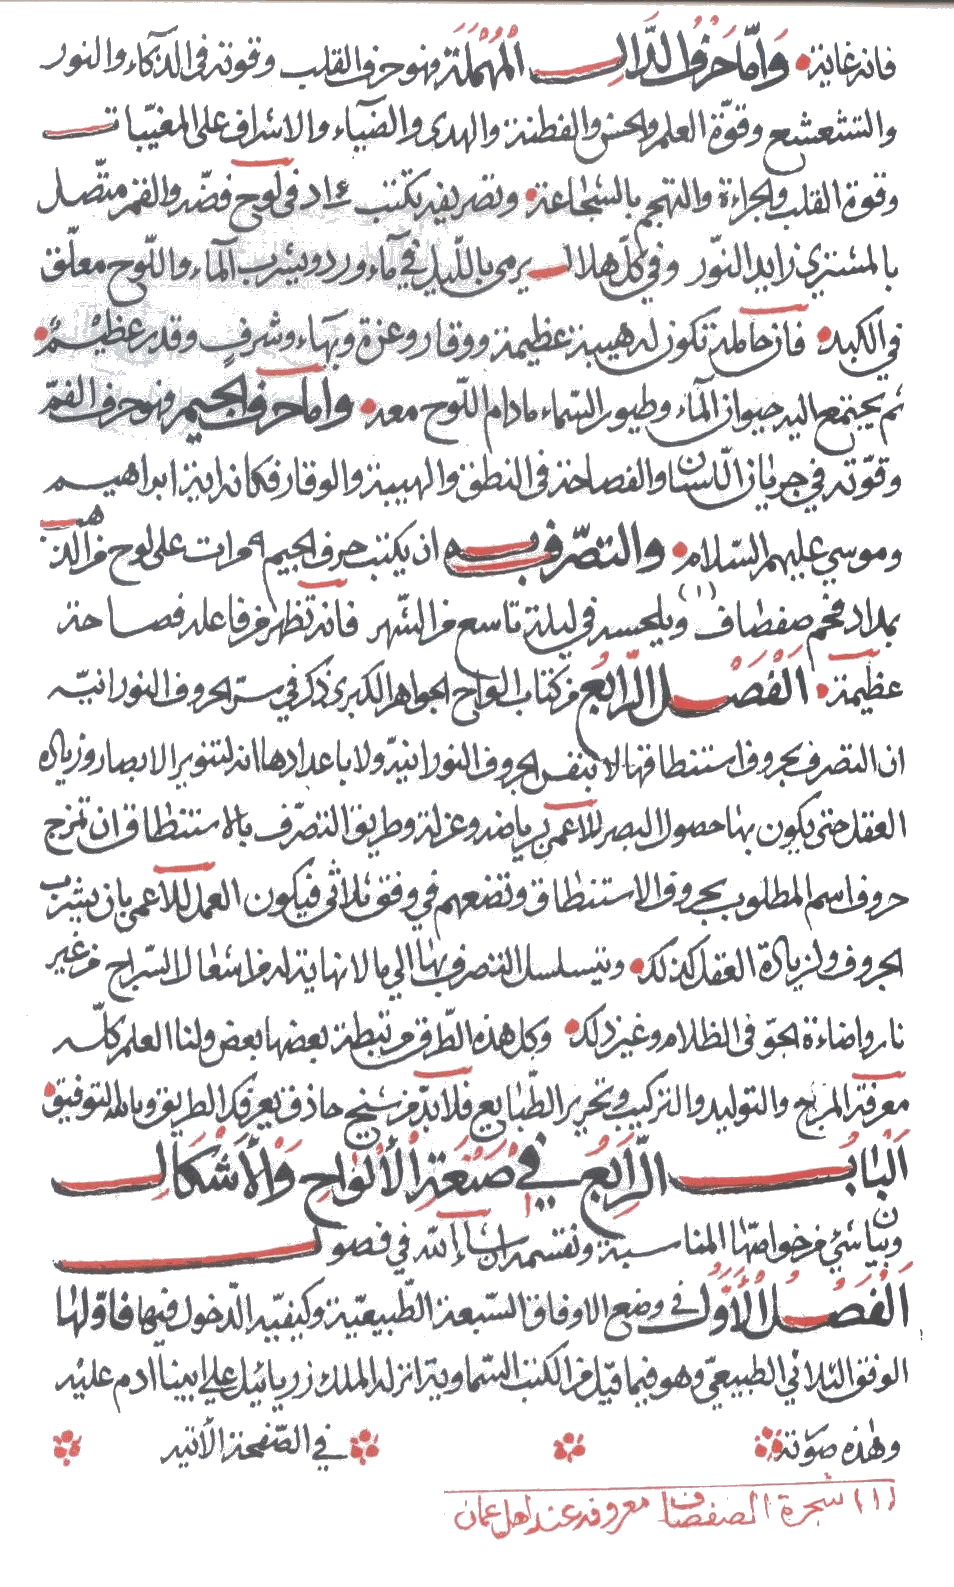 فانه غاية • وَأَمَّا حَرْفُ الدَّالِ الْمُهْمَلَةِ فهو حرف القلب وقوته في الذكاء والنور
والتشعشع وقوّة العلم والحس والفطنة والهدى والضياء والاشراف على المغيّبات
وقوة القلب والجراءة والتهجم بالشجاعة • وتصريفه تكتب ٤ اد في لوح فضّه والقمر متّصل
بالمشتري زايد النّور وفي كلّ هلال يرمى باللّيل في مآء ورد ويشرب المآء واللّوح معلّق
في الكبد • فان حامله تكون له هيبة عظيمة ووقار وعزة وبهاء وشرف وقدر عظيم •
ثم يجتمع اليه حيوان المآء وطيور السّماء مادام اللّوح معه • واما حرف الجيم فهو حرف الفمّ
وقوّته في جريان اللّسان والفصاحة في النطق والهيبة والوقار فكانه اية ابراهيم
وموسى عليهم السّلام • والتصّرف به ان يكتب حرف الجيم ٣ مرات على لوح من الذهب
بمداد فحم صفصاف (١) ويلحسه في ليلة تاسع من الشّهر فانه تظهر من فاعله فصاحة
عظيمة • اَلْفَصْلُ الرَّابُع من كتاب الواح الجواهر الكبرى ذكر في سرّ الحروف النورانيّه
ان التصرف بحروف استنطاقها لا بنفس الحروف النورانيّه ولا باعدادها انه لتنوير الابصار وزيادة
العقل حتى يكون بها حصول البصر للاعمى برياضه وعزلة وطريق التصّرف بالاستنطاق ان تمزج
حروف اسم المطلوب بحروف الاستنطاق وتضعهم في وفق ثلاثي فيكون العمل للاعمى بان يشرب
الحروف ولزيادة العقل كذلك • ويتسلسل التصرف بها الى مالا نهاية له من اشعال السّراج من غير
نار واضاءة الجوّ في الظلام وغير ذلك • وكل هذه الطّرق مرتبطة بعضها بعض ولنا العلم كلّه
معرفة المزج والتوليد والتركيب وتحرير الطّبايع فلا بدّ من شيخ حاذق يعرفك الطريق وبالله التوفيق •
اَلْبَابُ الرَّابِعُ فِي صَنْعَةِ الْأَلْوَاحِ وَالْأَشْكَالِ
وبيان شئ من خواصّها المناسبة ونقسمه ان شاء الله في فصول
اَلْفَصْلُ الْأَوَّلُ في وضع الاوفاق السّبعة الطّبيعيّة وكيفيّه الدّخول فيها فاوّلها
الوفق الثلاثي الطبيعيّ وهو فيما قيل من الكتب السّماوية انزله الملك زريائيل على ابينا ادم عليه
وهذه صورته في الصّفحة الأتيه
(١) شجرة الصفصاف معروفه عند اهل عمان